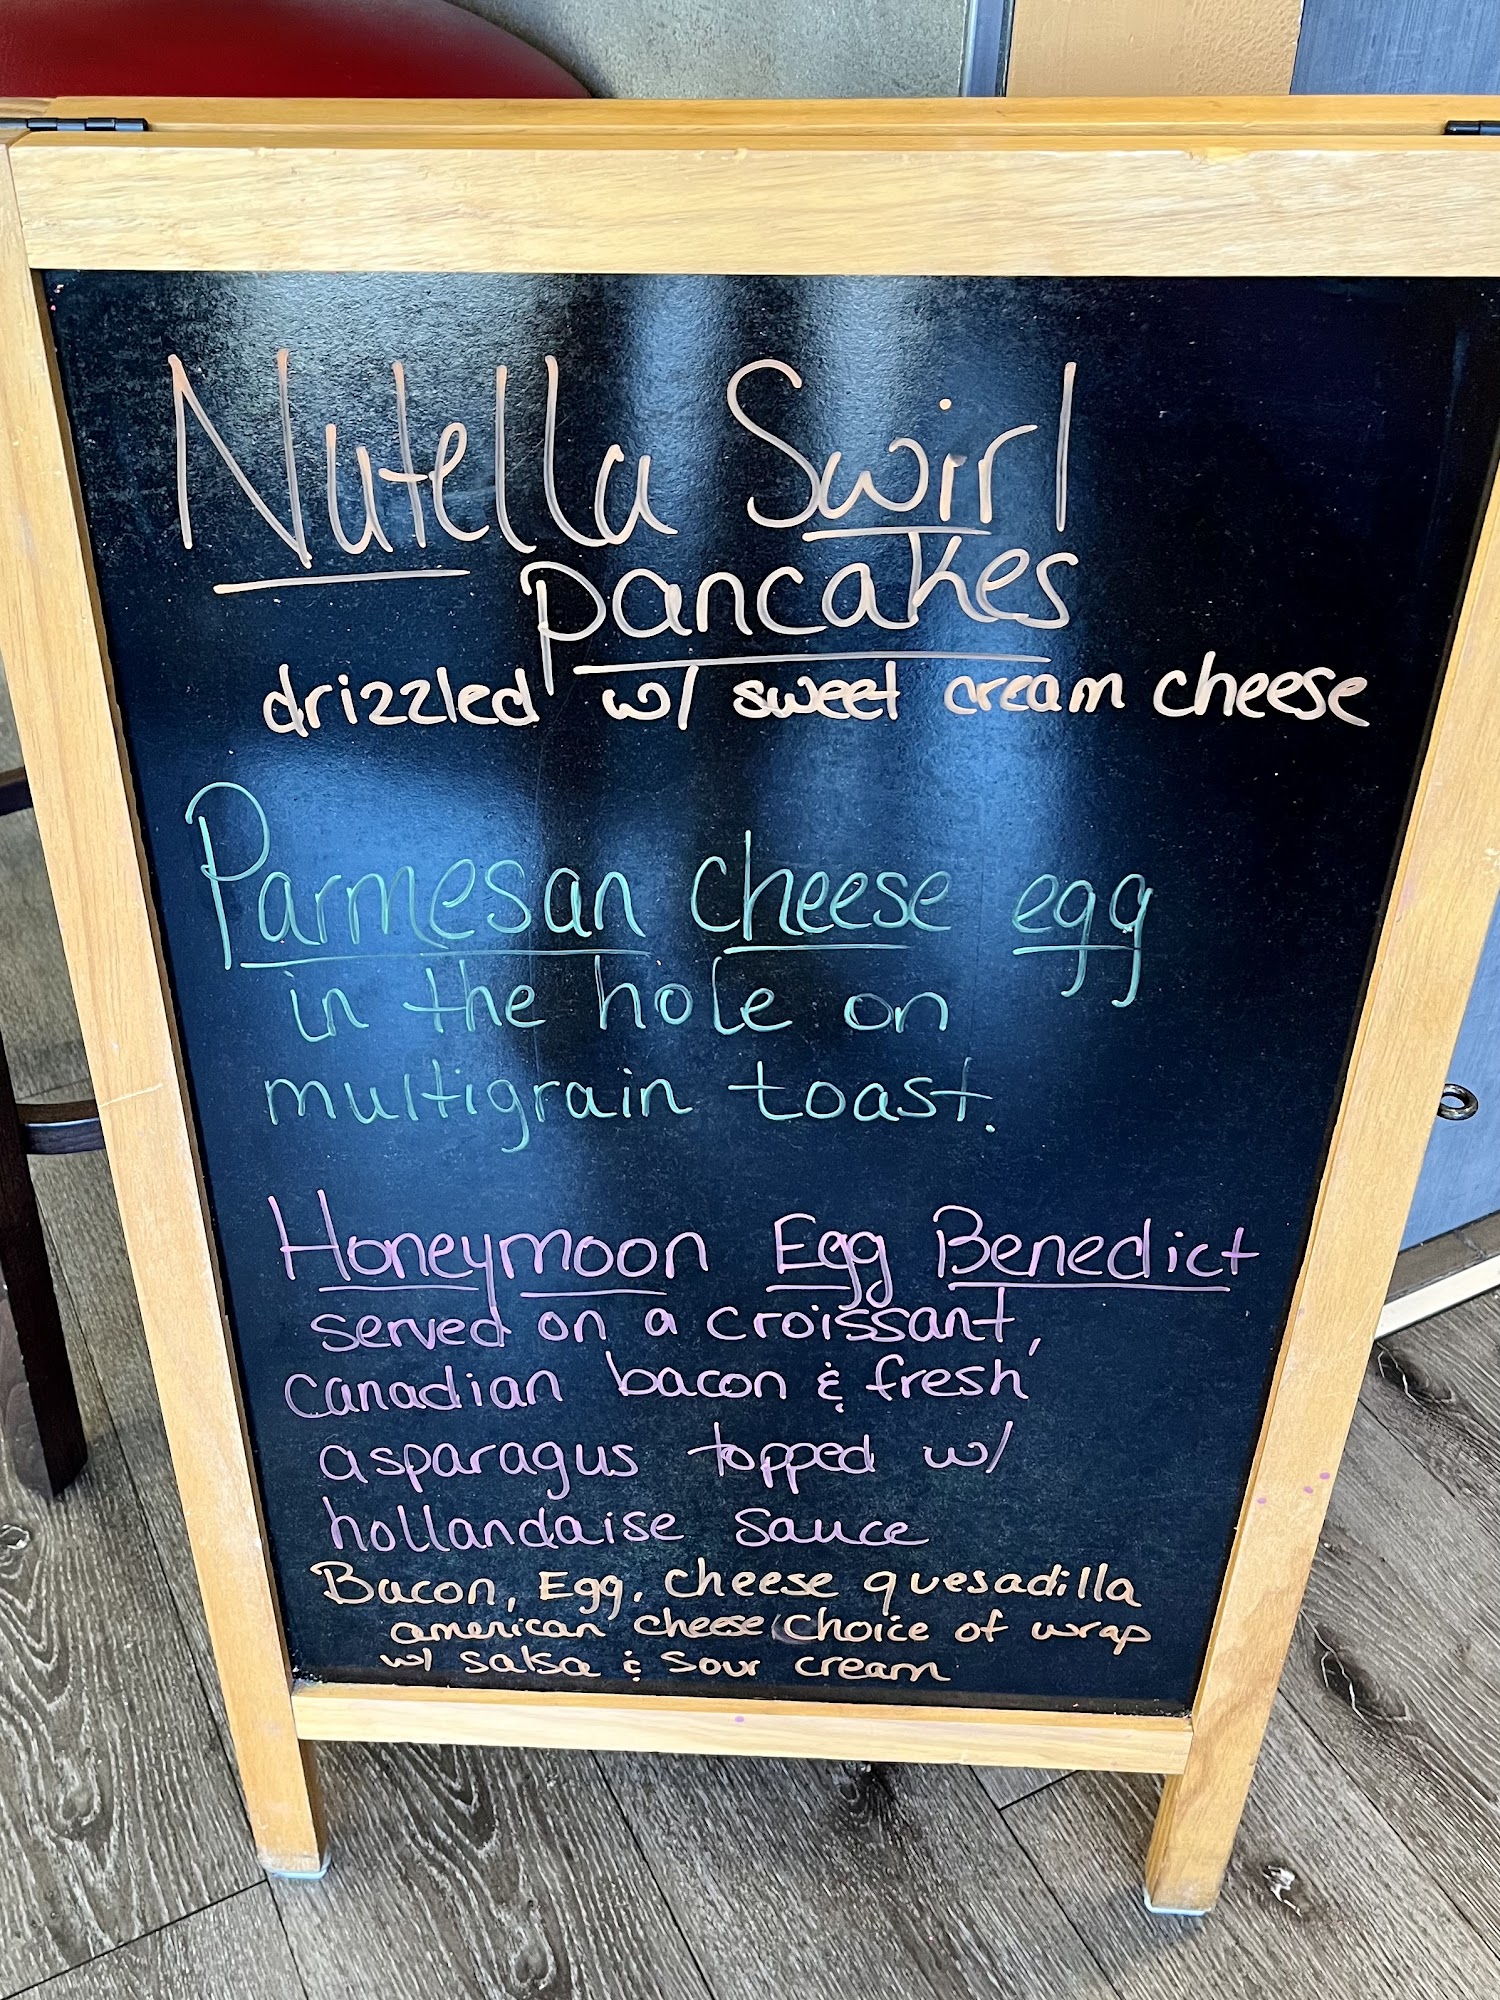 Nutella Swirl
pancakes
drizzled w/ sweet cream cheese
Parmesan cheese egg
in the hole on
multigrain toast.
Honeymoon Egg Benedict
served on a croissant,
canadian bacon & fresh
asparagus topped w/
hollandaise sauce
Bacon, Egg, cheese quesadilla
american cheese, choice of wrap
w/ salsa & sour cream